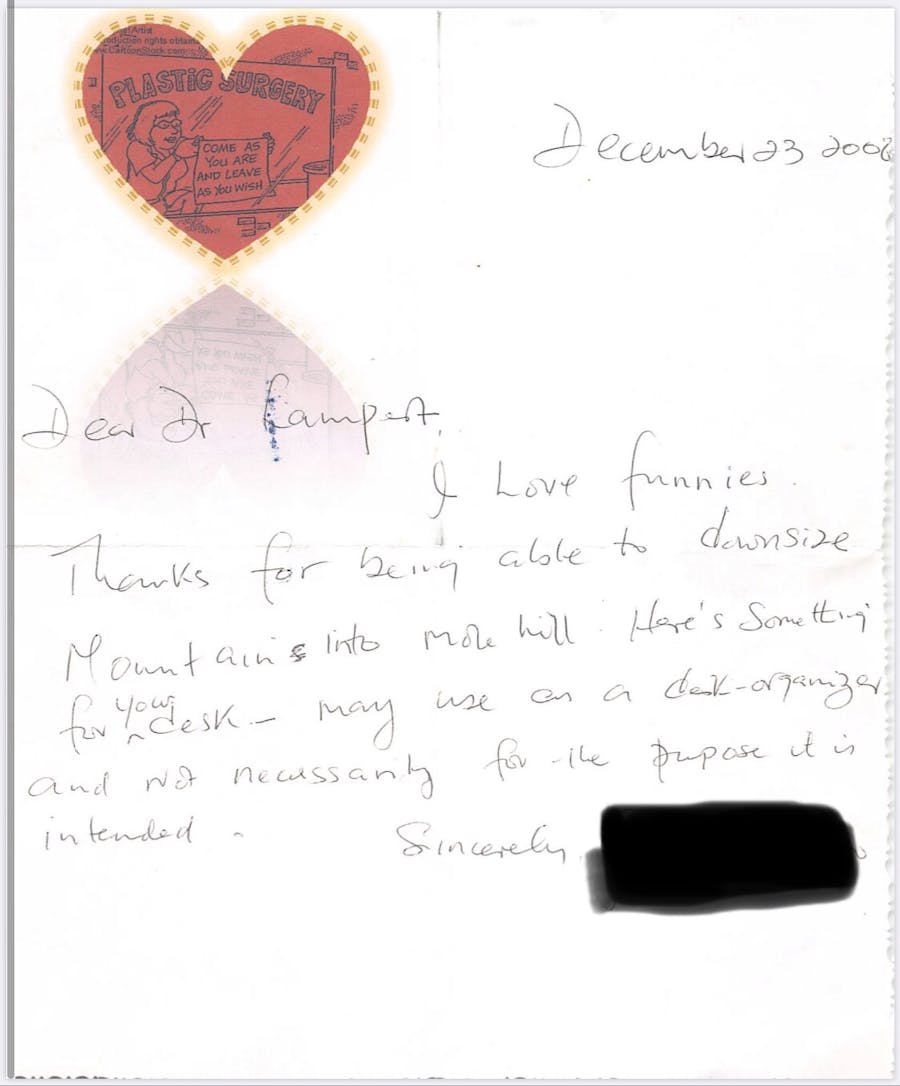 Artist
duction rights obtain
w.CartoonStock.com
PLASTIC SURGERY
COME AS
YOU ARE
AND LEAVE
AS YOU WISH
December 23 2008
Dear Dr Lampert,
I Love funnies.
Thanks for being able to downsize
Mountains into mole hill. Here's Something
for your desk - may use on a desk-organizer
and not necessarily for the pupose it is
intended.
Sincerely,